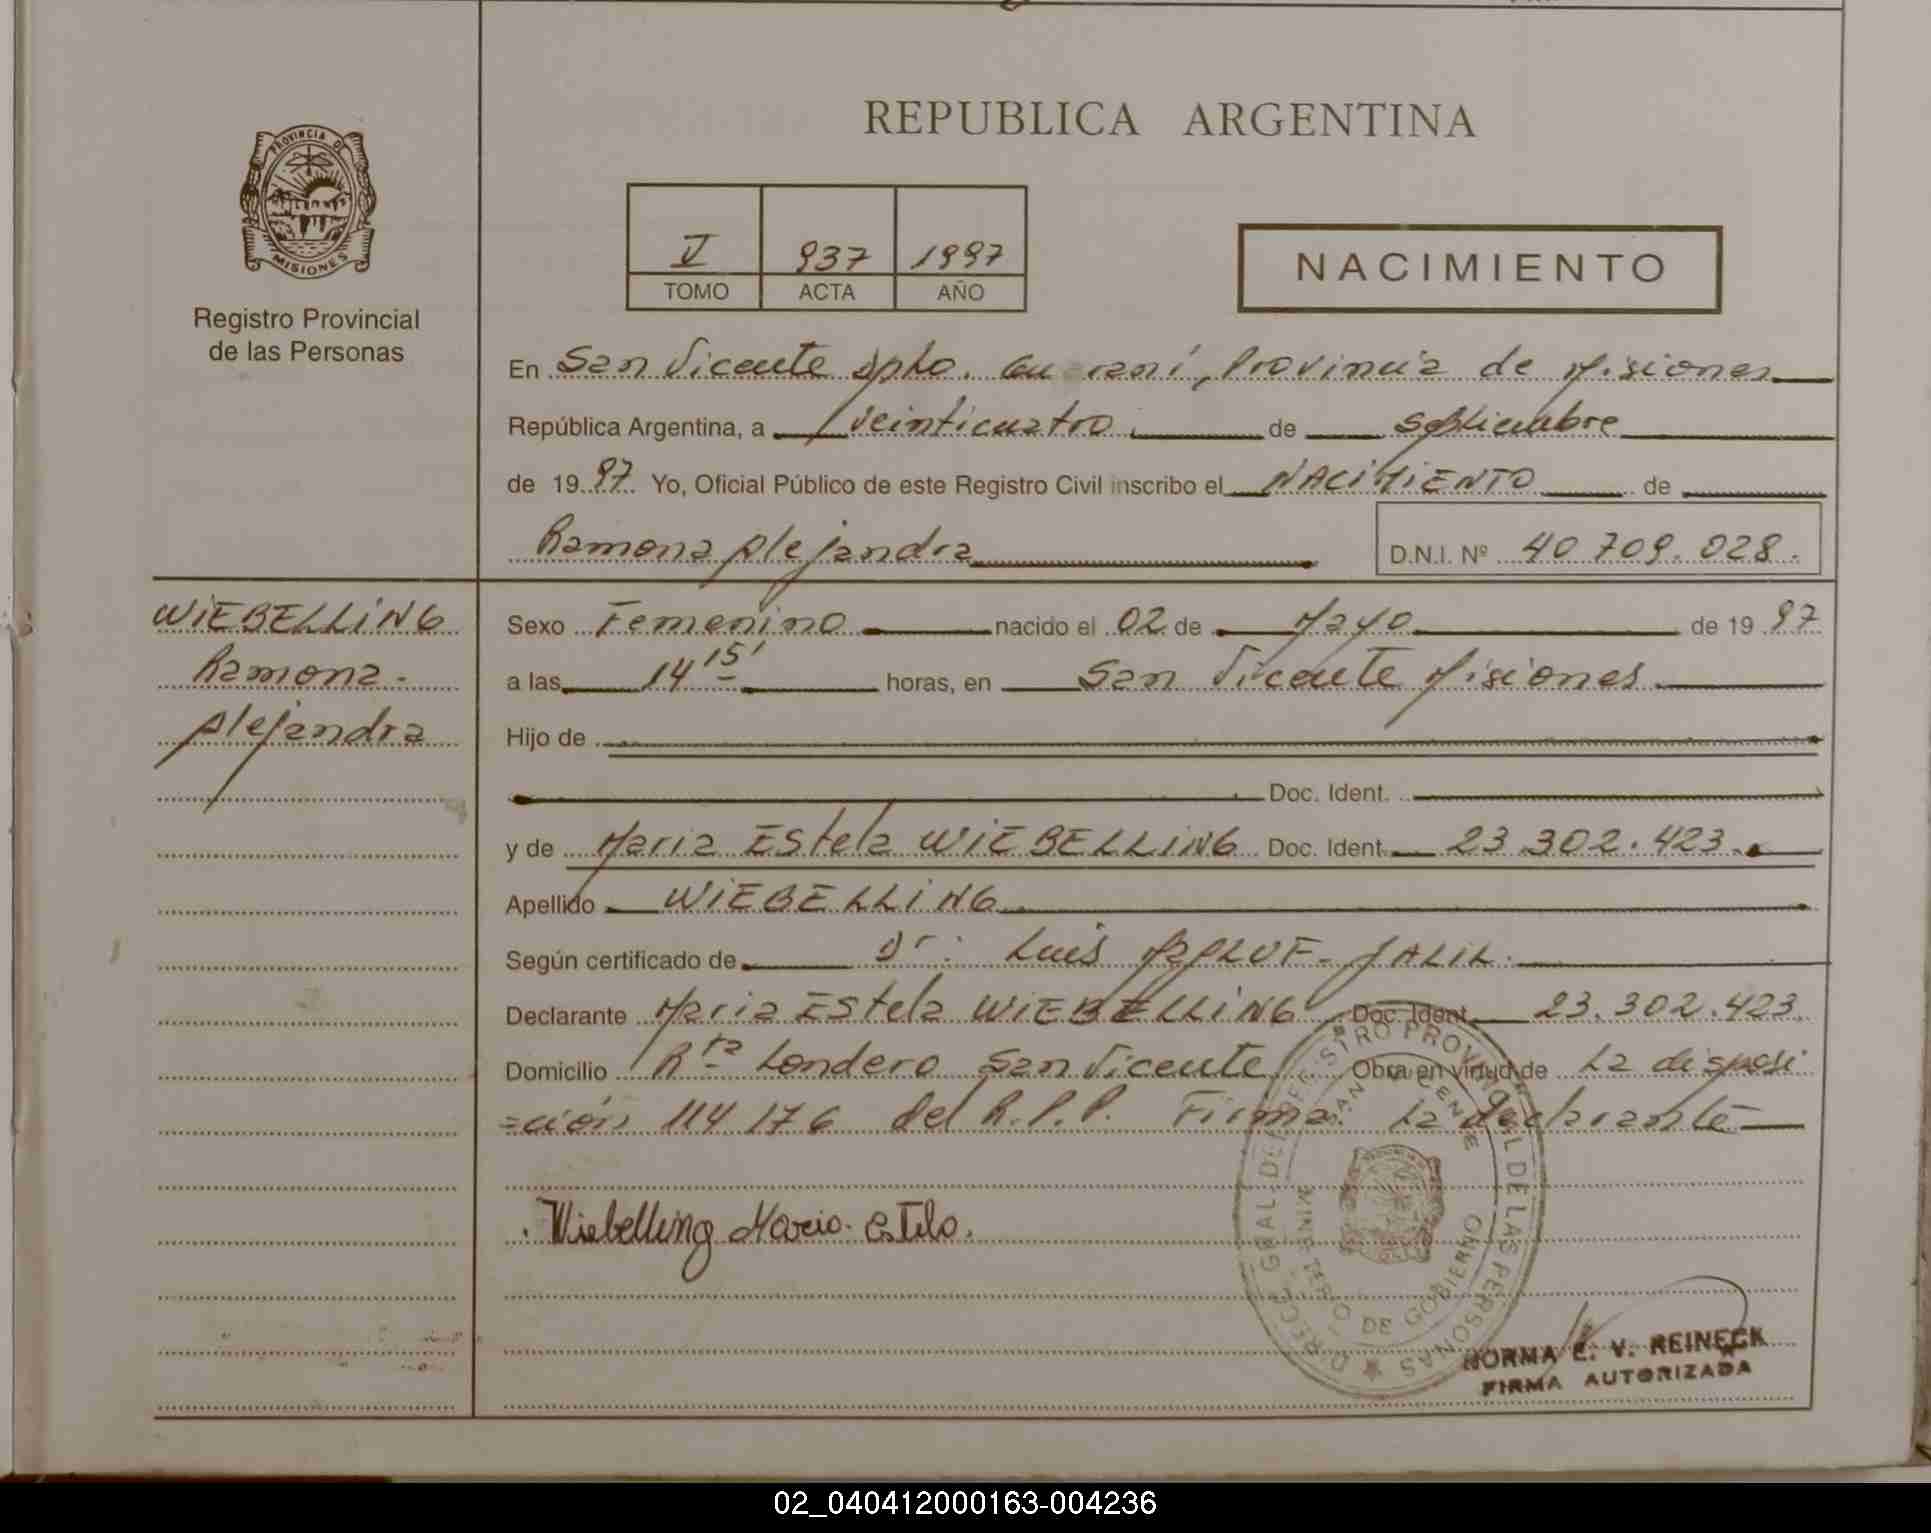 REPUBLICA ARGENTINA
PROVINCIA DE
MISIONES
Registro Provincial
de las Personas
V 937 1997
TOMO ACTA AÑO
NACIMIENTO
En San Vicente Dpto. Guaraní, Provincia de Misiones
República Argentina, a veinticuatro de septiembre
de 1997 Yo, Oficial Público de este Registro Civil inscribo el NACIMIENTO de
Ramona Alejandra D.N.I. Nº 40.709.028.
WIEBELLING
Ramona
Alejandra
Sexo Femenino nacido el 02 de Mayo de 1997
a las 14 15' horas, en San Vicente Misiones
Hijo de
Doc. Ident.
y de Maria Estela WIEBELLING Doc. Ident. 23.302.423.
Apellido WIEBELLING
Según certificado de Dr. Luis JALIL.
Declarante Maria Estela WIEBELLING Doc. Ident. 23.302.423.
Domicilio Rta Londero San Vicente Obra en virtud de La disposi
=ción 114 176 del R.P.P. Firma: La declarante
Wiebelling Maria Estela.
DIRECC. GRAL. DEL REGISTRO PROVINCIAL DE LAS PERSONAS
SAN VICENTE
MINISTERIO DE GOBIERNO
NORMA E. V. REINECK
FIRMA AUTORIZADA
02_040412000163-004236